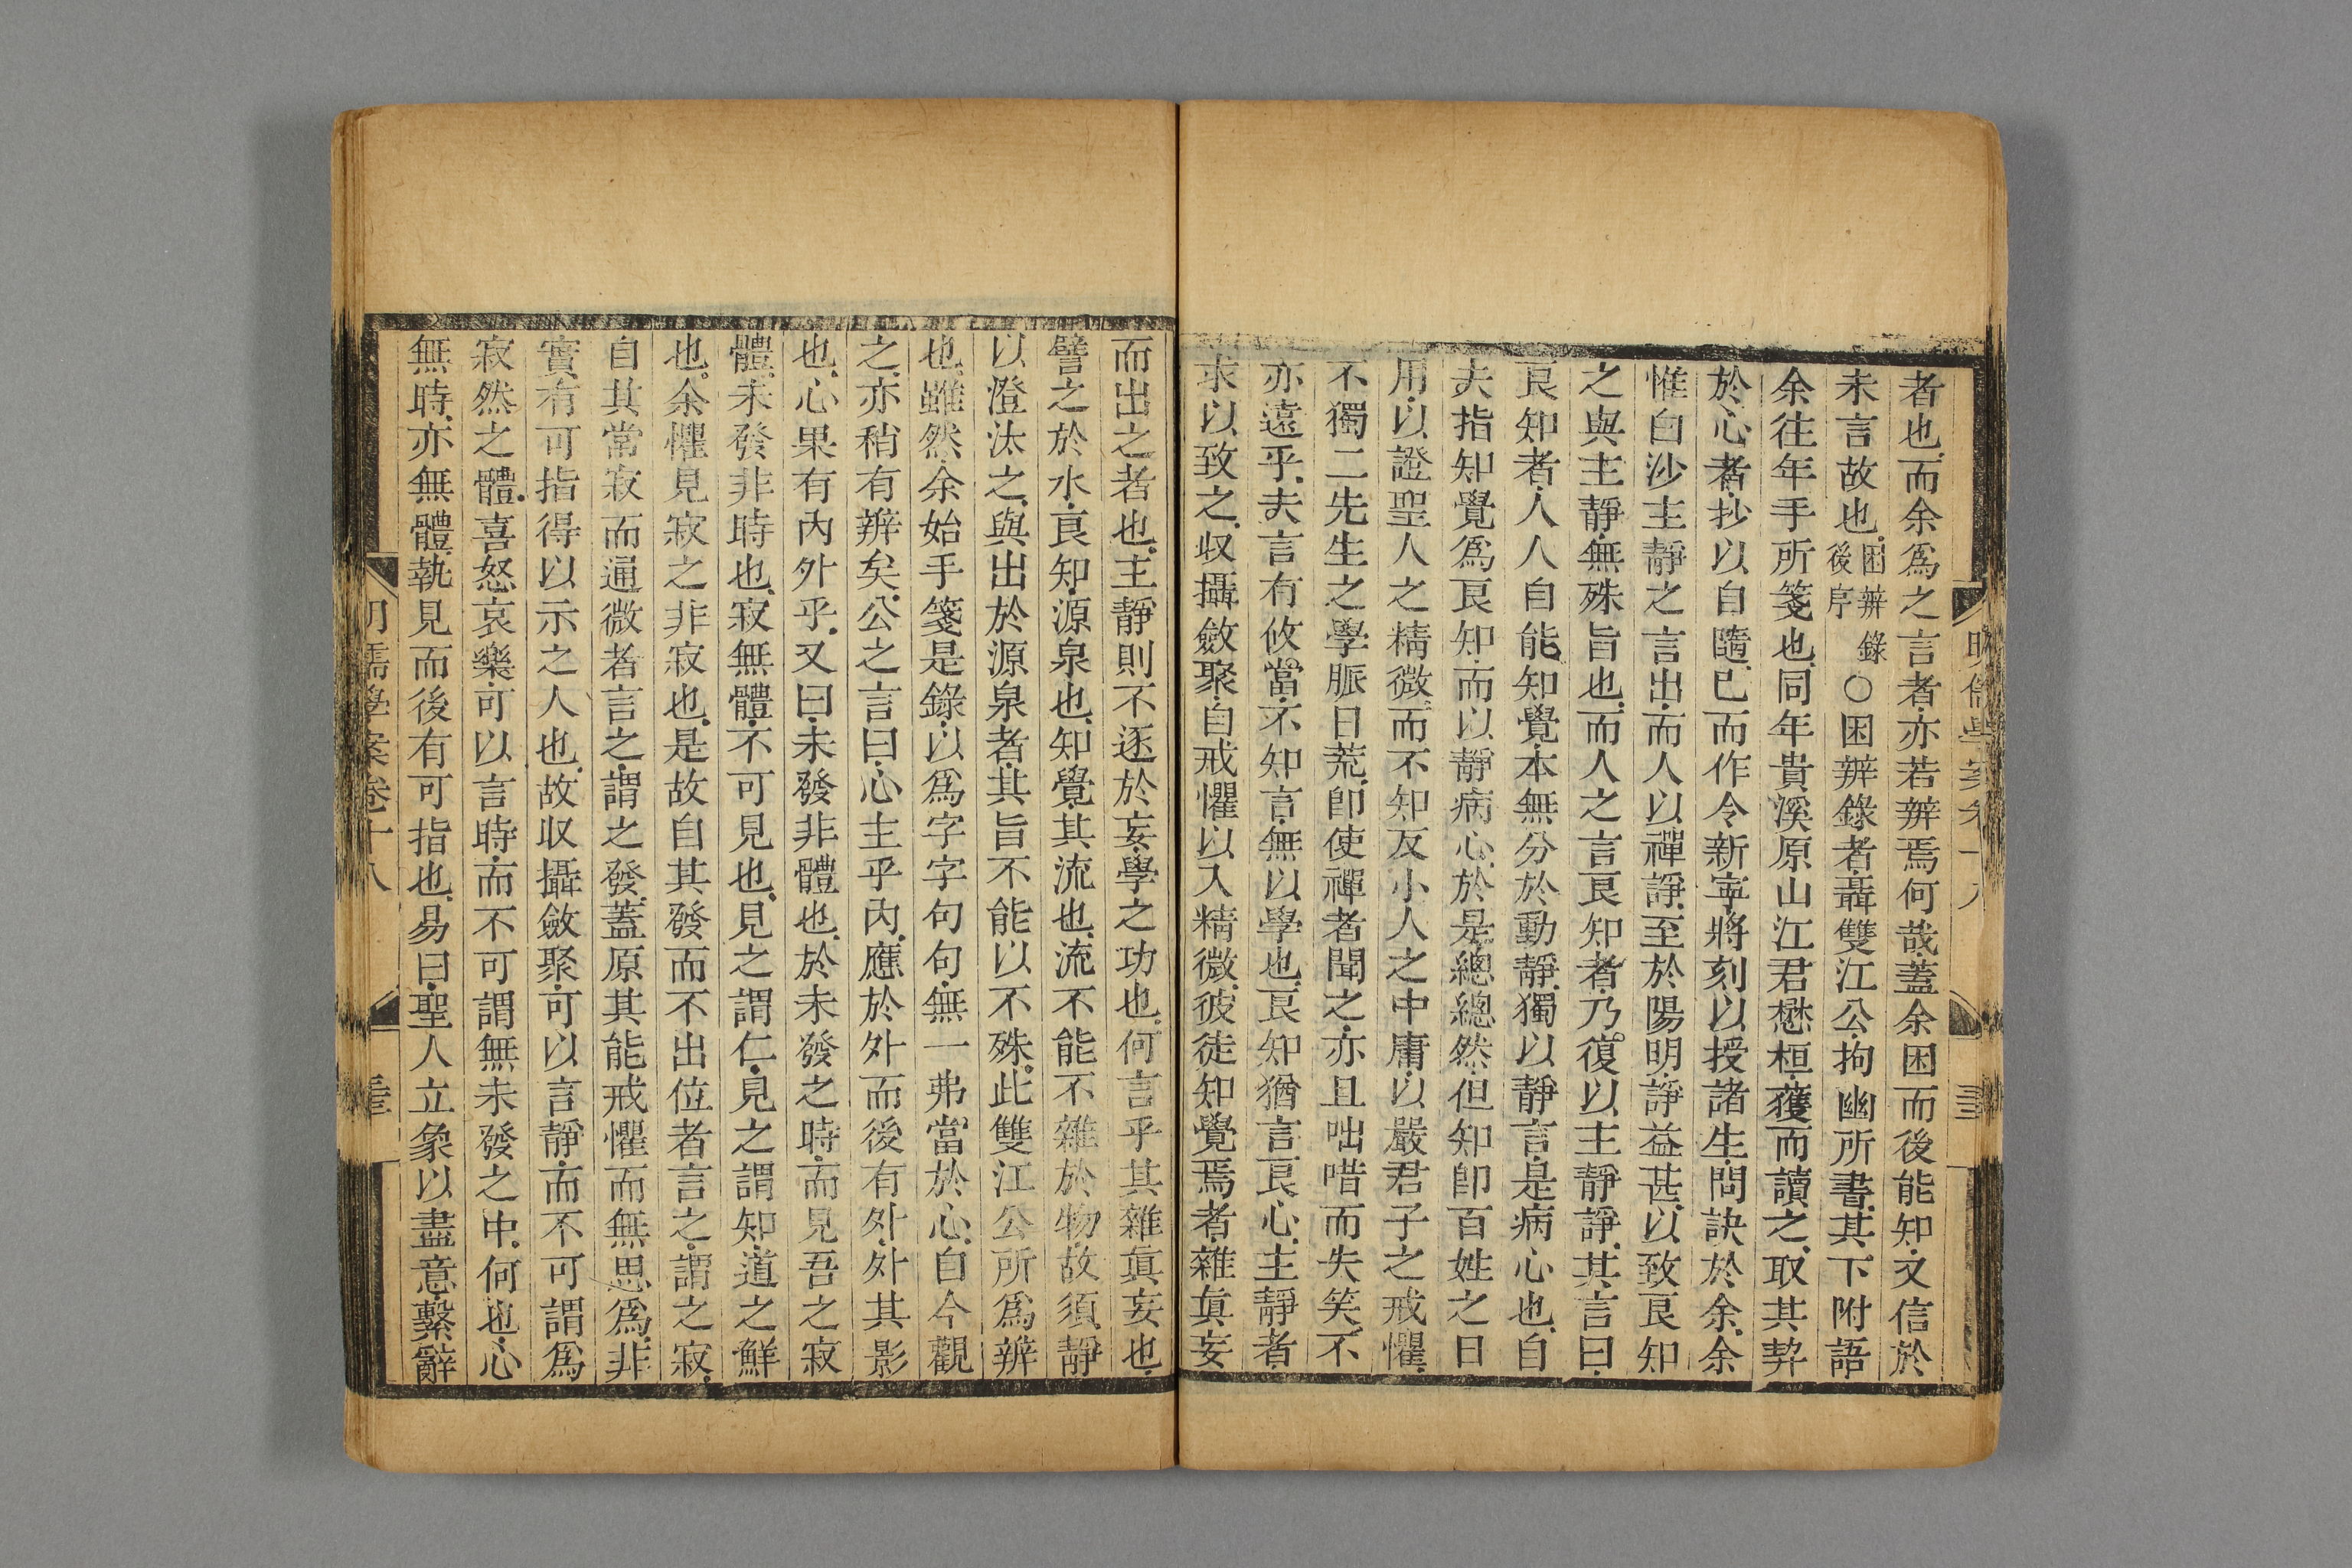 者也而余爲之言者亦若辨焉何哉蓋余困而後能知又信於
未言故也困辨錄後序〇困辨錄者聶雙江公拘幽所書其下附語
余往年手所箋也同年貴溪原山江君懋桓獲而讀之取其契
於心者抄以自隨已而作令新寧將刻以授諸生問訣於余余
惟白沙主靜之言出而人以禪諍至於陽明諍益甚以致良知
之與主靜無殊旨也而人之言良知者乃復以主靜諍其言曰
良知者人人自能知覺本無分於動靜獨以靜言是病心也自
夫指知覺爲良知而以靜病心於是總總然但知卽百姓之日
用以證聖人之精微而不知反小人之中庸以嚴君子之戒懼
不獨二先生之學脈日荒卽使禪者聞之亦且咄唶而失笑不
亦遠乎夫言有攸當不知言無以學也良知猶言良心主靜者
求以致之収攝斂聚自戒懼以入精微彼徒知覺焉者雜眞妄
而出之者也主靜則不逐於妄學之功也何言乎其雜眞妄也
譬之於水良知源泉也知覺其流也流不能不雜於物故須靜
以澄汰之與出於源泉者其旨不能以不殊此雙江公所爲辨
也雖然余始手箋是錄以爲字字句句無一弗當於心自今觀
之亦稍有辨矣公之言曰心主乎內應於外而後有外外其影
也心果有內外乎又曰未發非體也於未發之時而見吾之寂
體未發非時也寂無體不可見也見之謂仁見之謂知道之鮮
也余懼見寂之非寂也是故自其發而不出位者言之謂之寂
自其常寂而通微者言之謂之發蓋原其能戒懼而無思爲非
實有可指得以示之人也故収攝斂聚可以言靜而不可謂爲
寂然之體喜怒哀樂可以言時而不可謂無未發之中何也心
無時亦無體執見而後有可指也易曰聖人立象以盡意繫辭
明儒學案卷十八